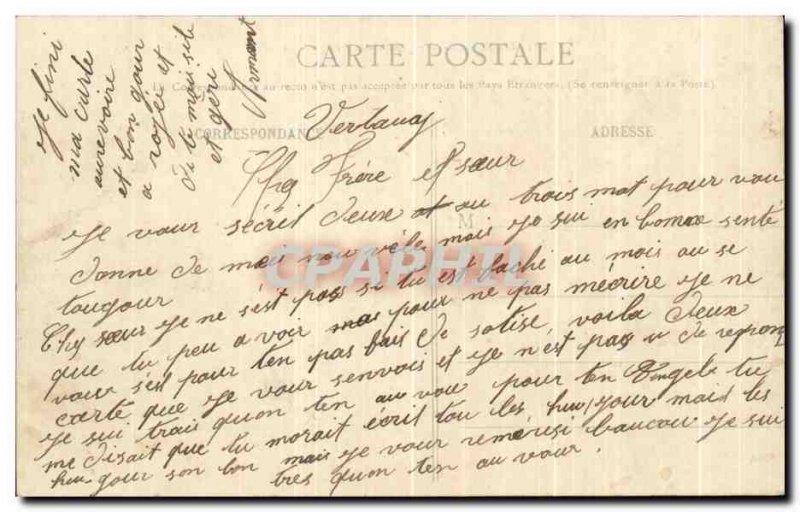 CARTE POSTALE
La Correspondance au recto n'est pas acceptée par tous les Pays Etrangers. (Se renseigner à la Poste)
CORRESPONDANCE
ADRESSE
M
CPAPHIL
Cheq Frère et sœur
Je vour sécrit deux au trois mot pour vou
donne de mau nou véle mais jo sui en bonne senté
tougour
Cheq sœur je ne sest pas si tu est faché au mois au se
que tu peu a voir mas pour ne pas mécrire je ne
vour sest pour ten pas fait de sotise, voila deux
carte que je vour senvois et je n'est pas u de repon
je sui trais quon ten au vou pour ten tu
me disait que tu morait écrit tou les huu jour mais les
huu jour son bon mais je vour remérsi baucou je sui
tres quon ten au vour.
Je fini
ma carte
aurevoire
et bon gour
a rosée et
et geri